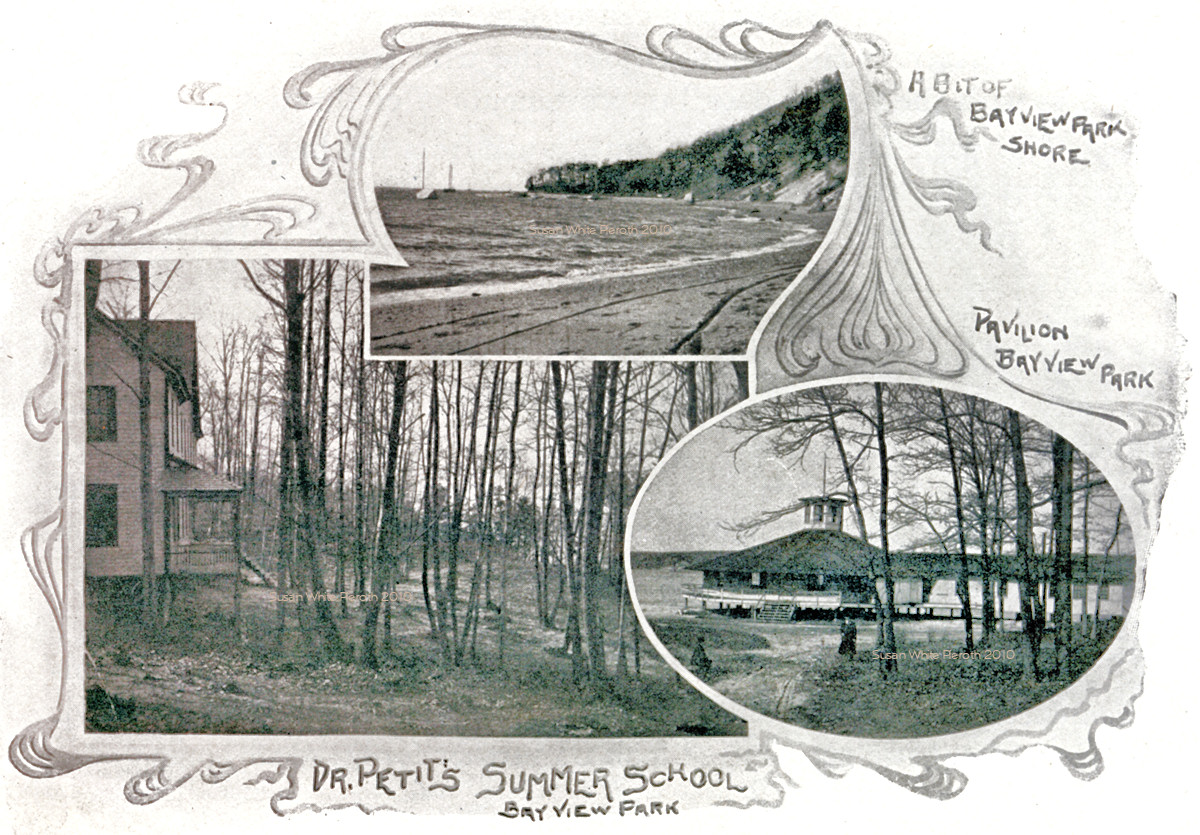 A BIT OF
BAYVIEW PARK
SHORE
Susan White Pieroth 2010
PAVILION
BAYVIEW PARK
Susan White Pieroth 2010
Susan White Pieroth 2010
DR. PETIT'S SUMMER SCHOOL
BAY VIEW PARK